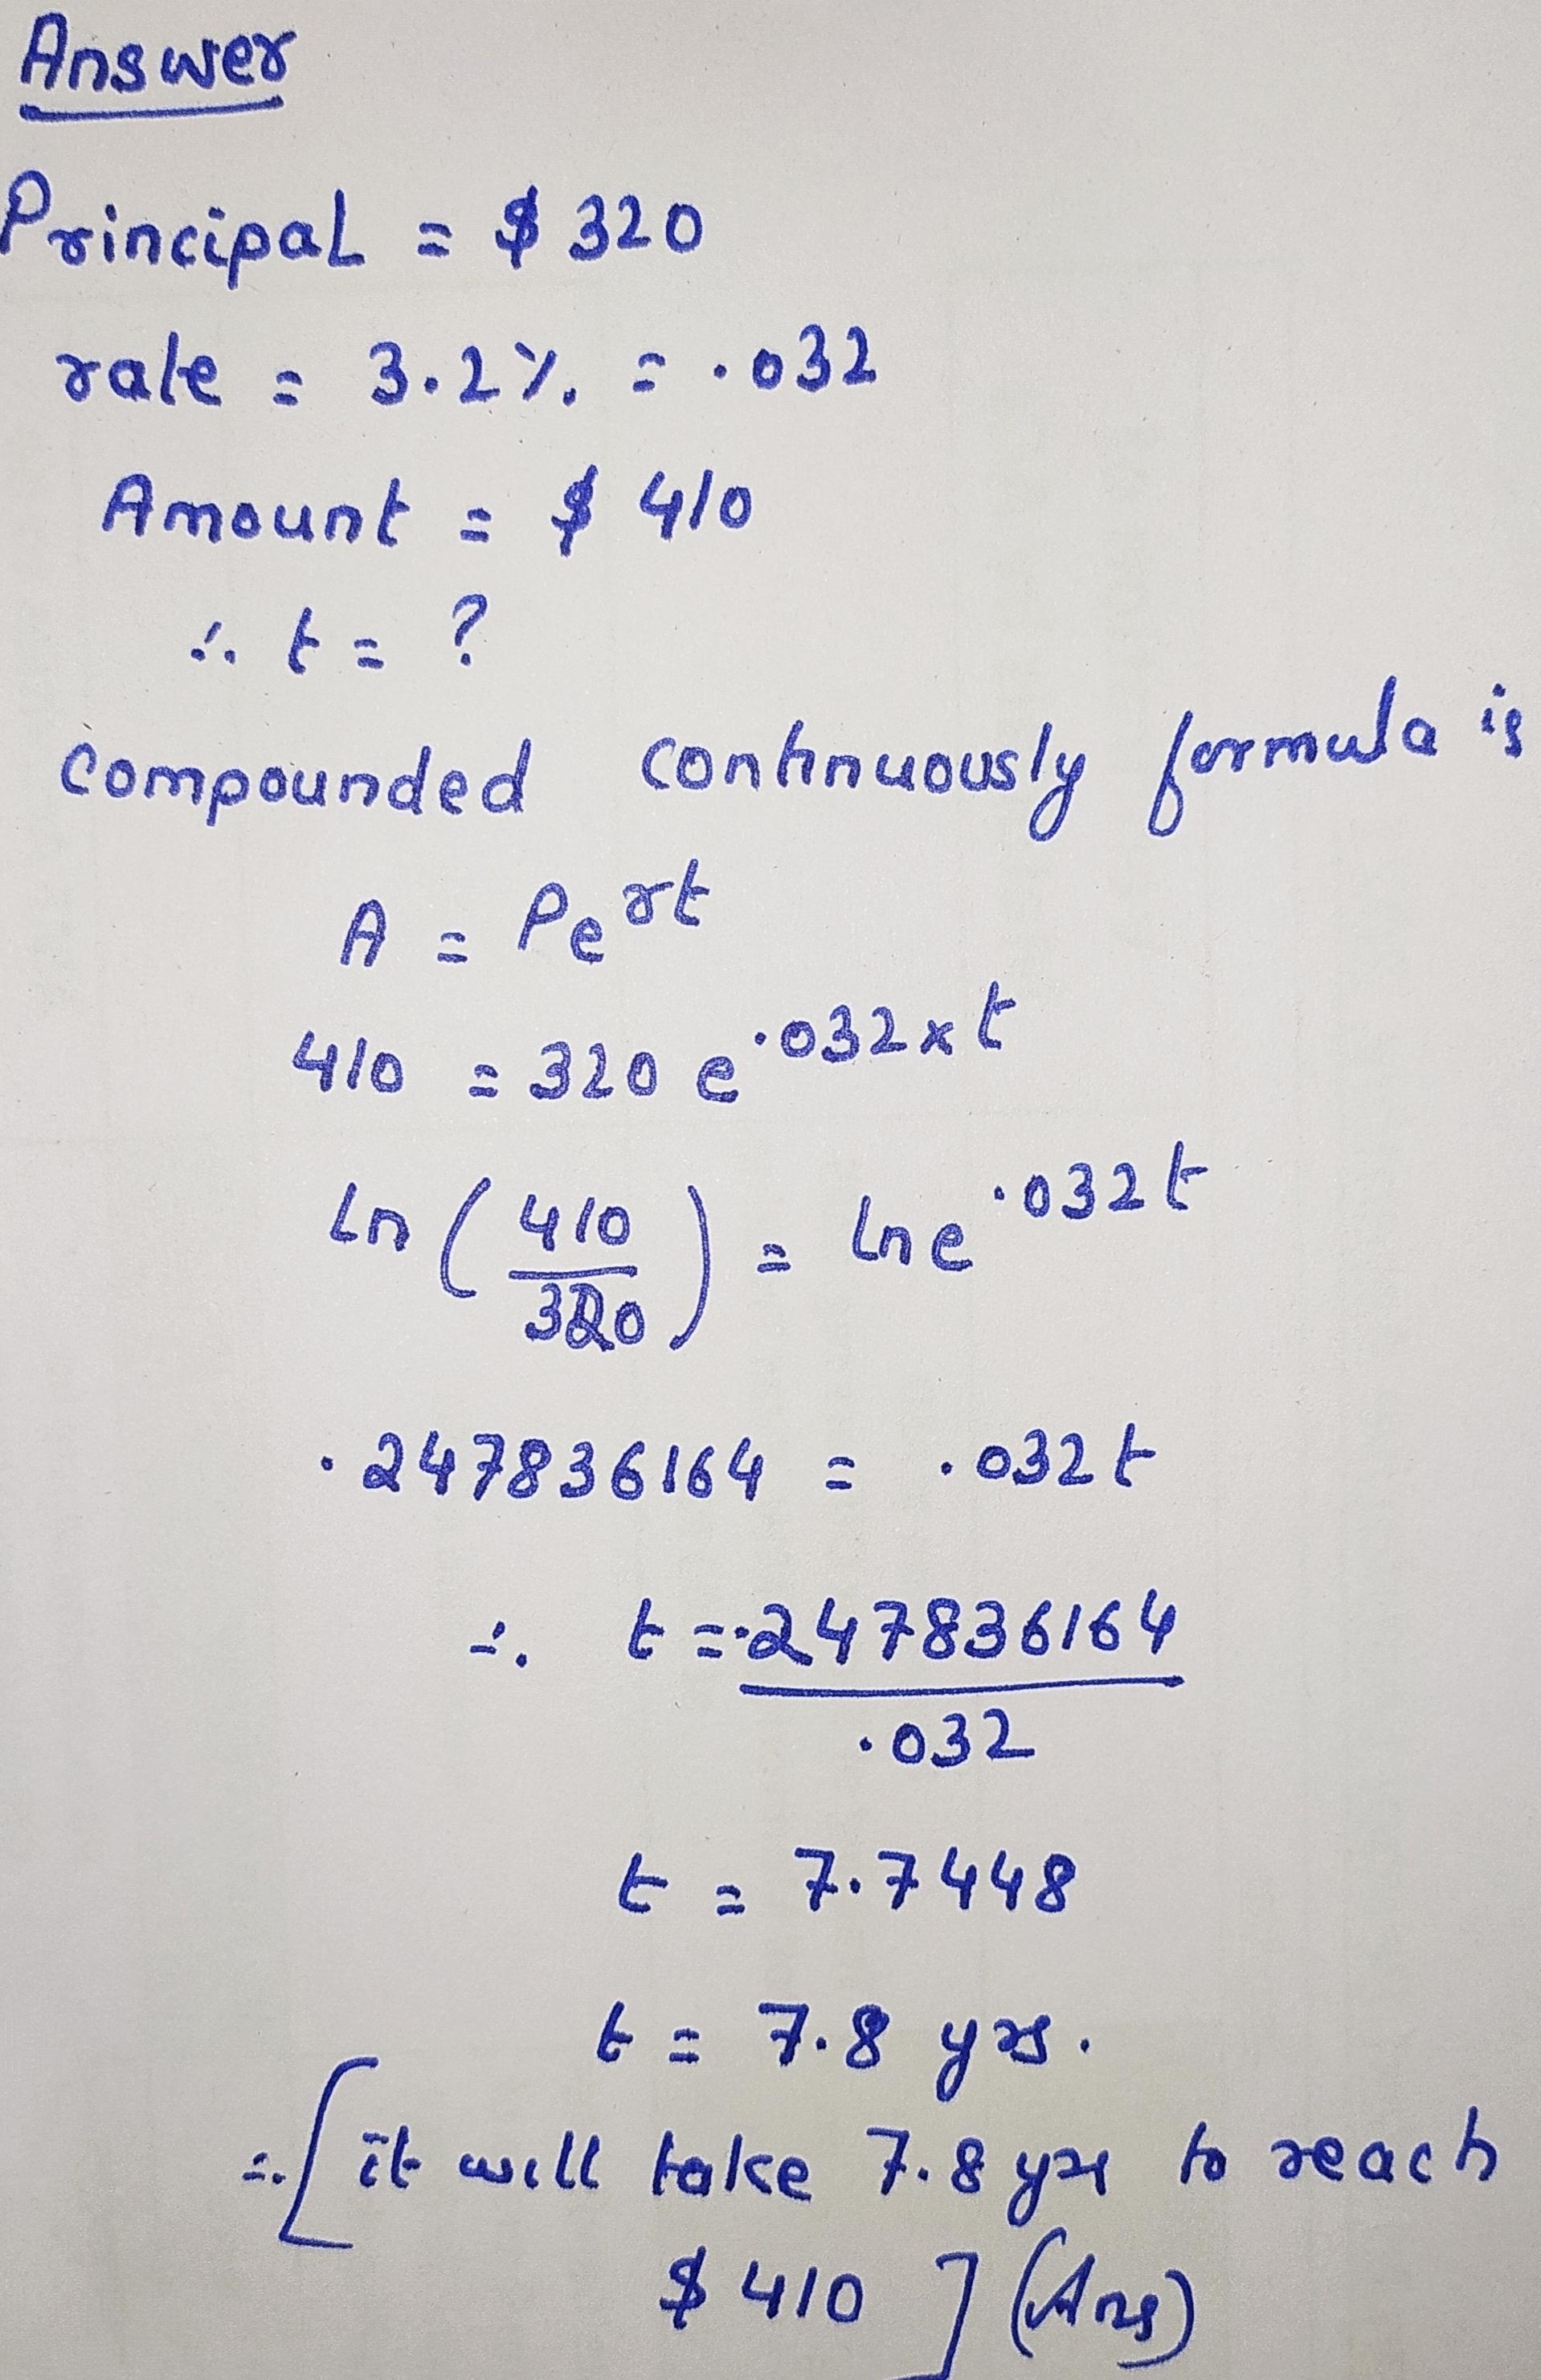 Answer
Principal = $ 320
rate = 3.2% = .032
Amount = $ 410
∴ t = ?
compounded continuously formula is
A = Pe^rt
410 = 320 e^.032×t
ln (410/320) = ln e^.032t
.247836164 = .032t
∴ t = .247836164/.032
t = 7.7448
t = 7.8 yrs.
∴ [it will take 7.8 yrs to reach
$ 410] (Ans)